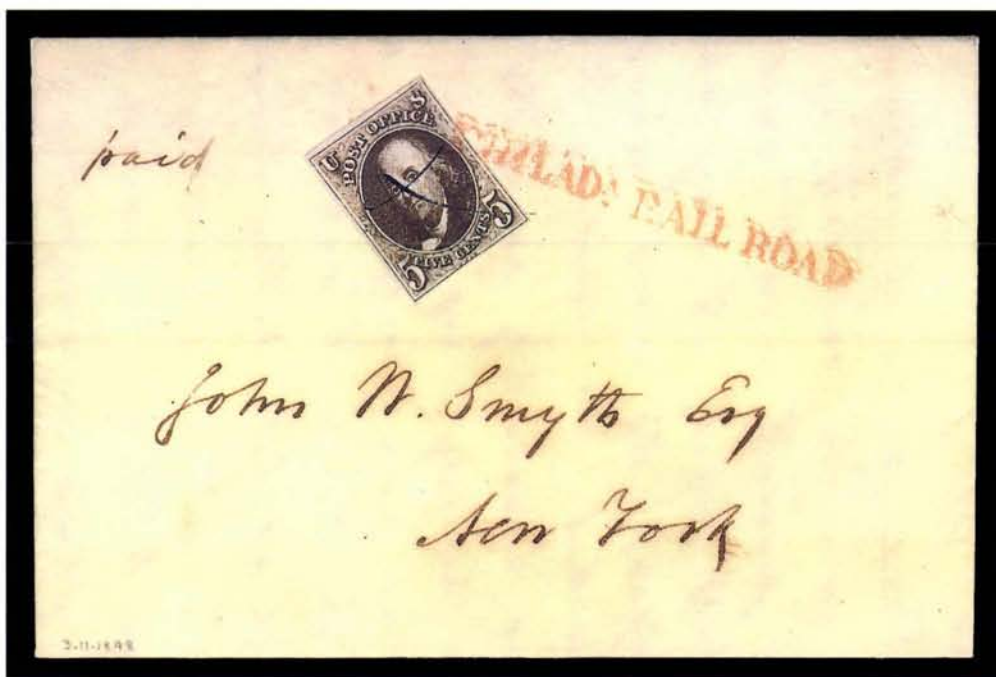 paid
U S
POST OFFICE
5 FIVE CENTS 5
PHILAD: RAIL ROAD
John W. Smyth Esq
New York
3-11-1848